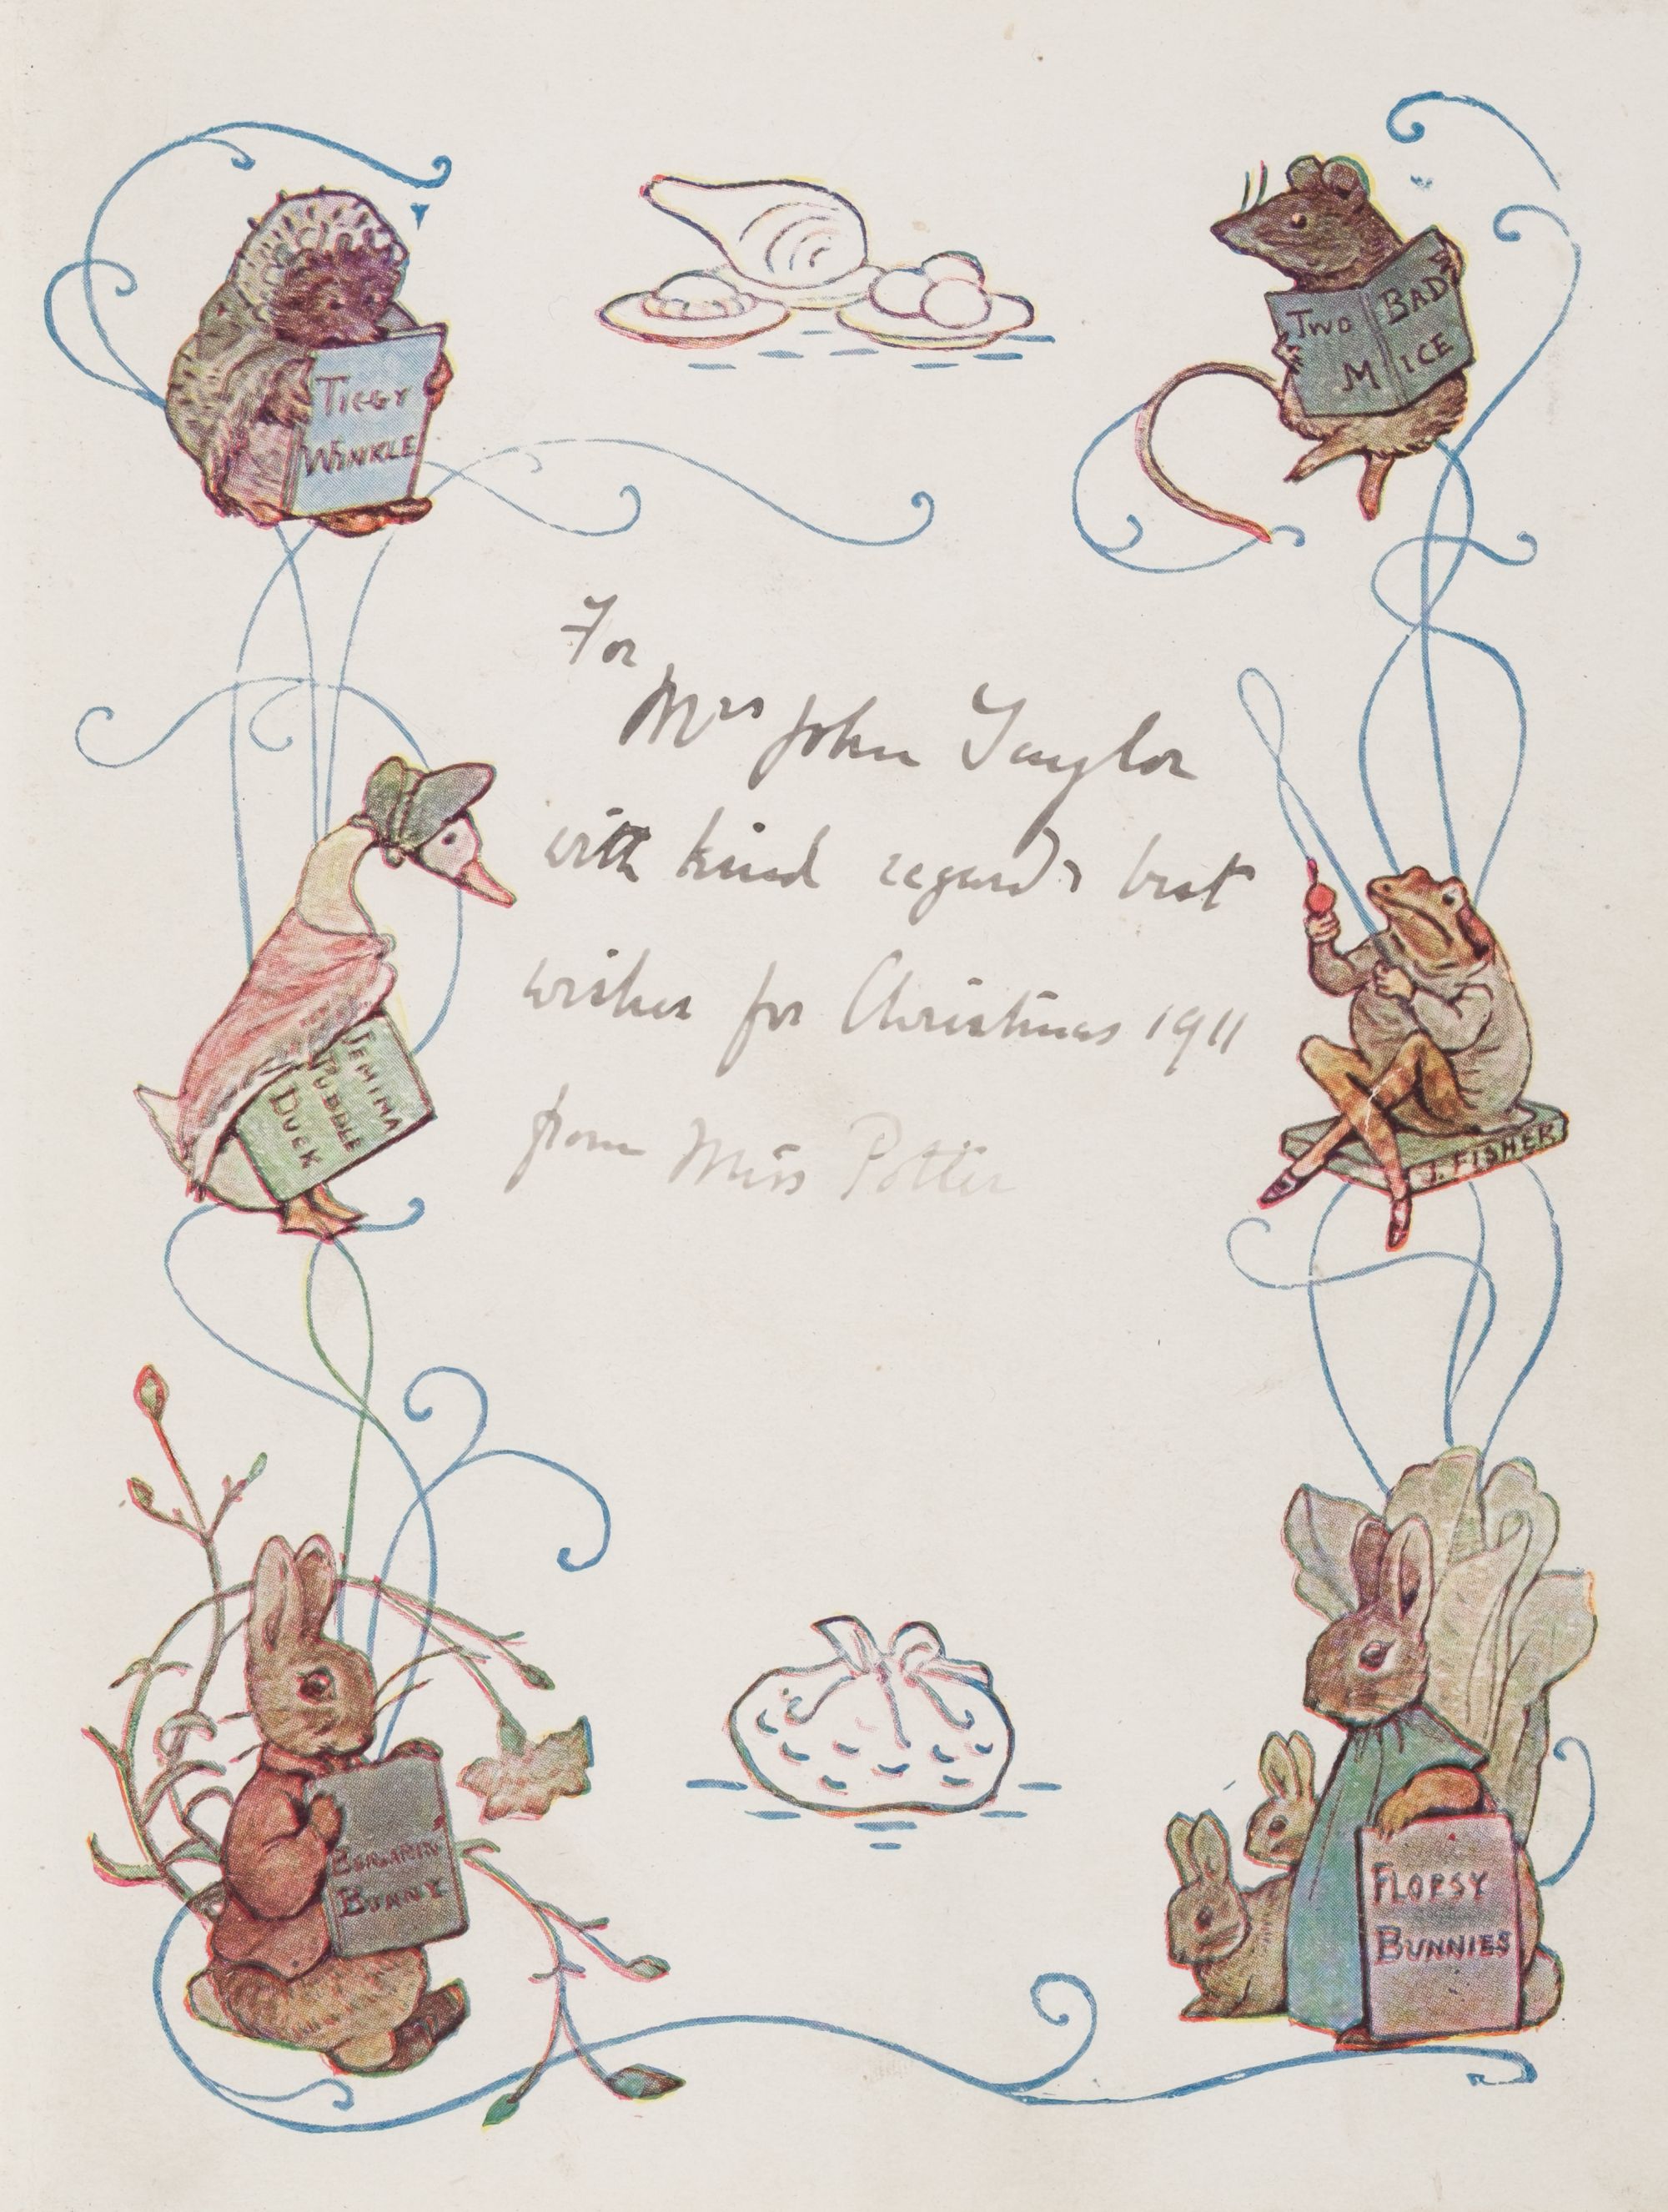 TIGGY
WINKLE
TWO BAD
MICE
For
Mrs John Taylor
with kind regards best
wishes for Christmas 1911
from Miss Potter
JEMIMA
PUDDLE
DUCK
J. FISHER
BENJAMIN
BUNNY
FLOPSY
BUNNIES